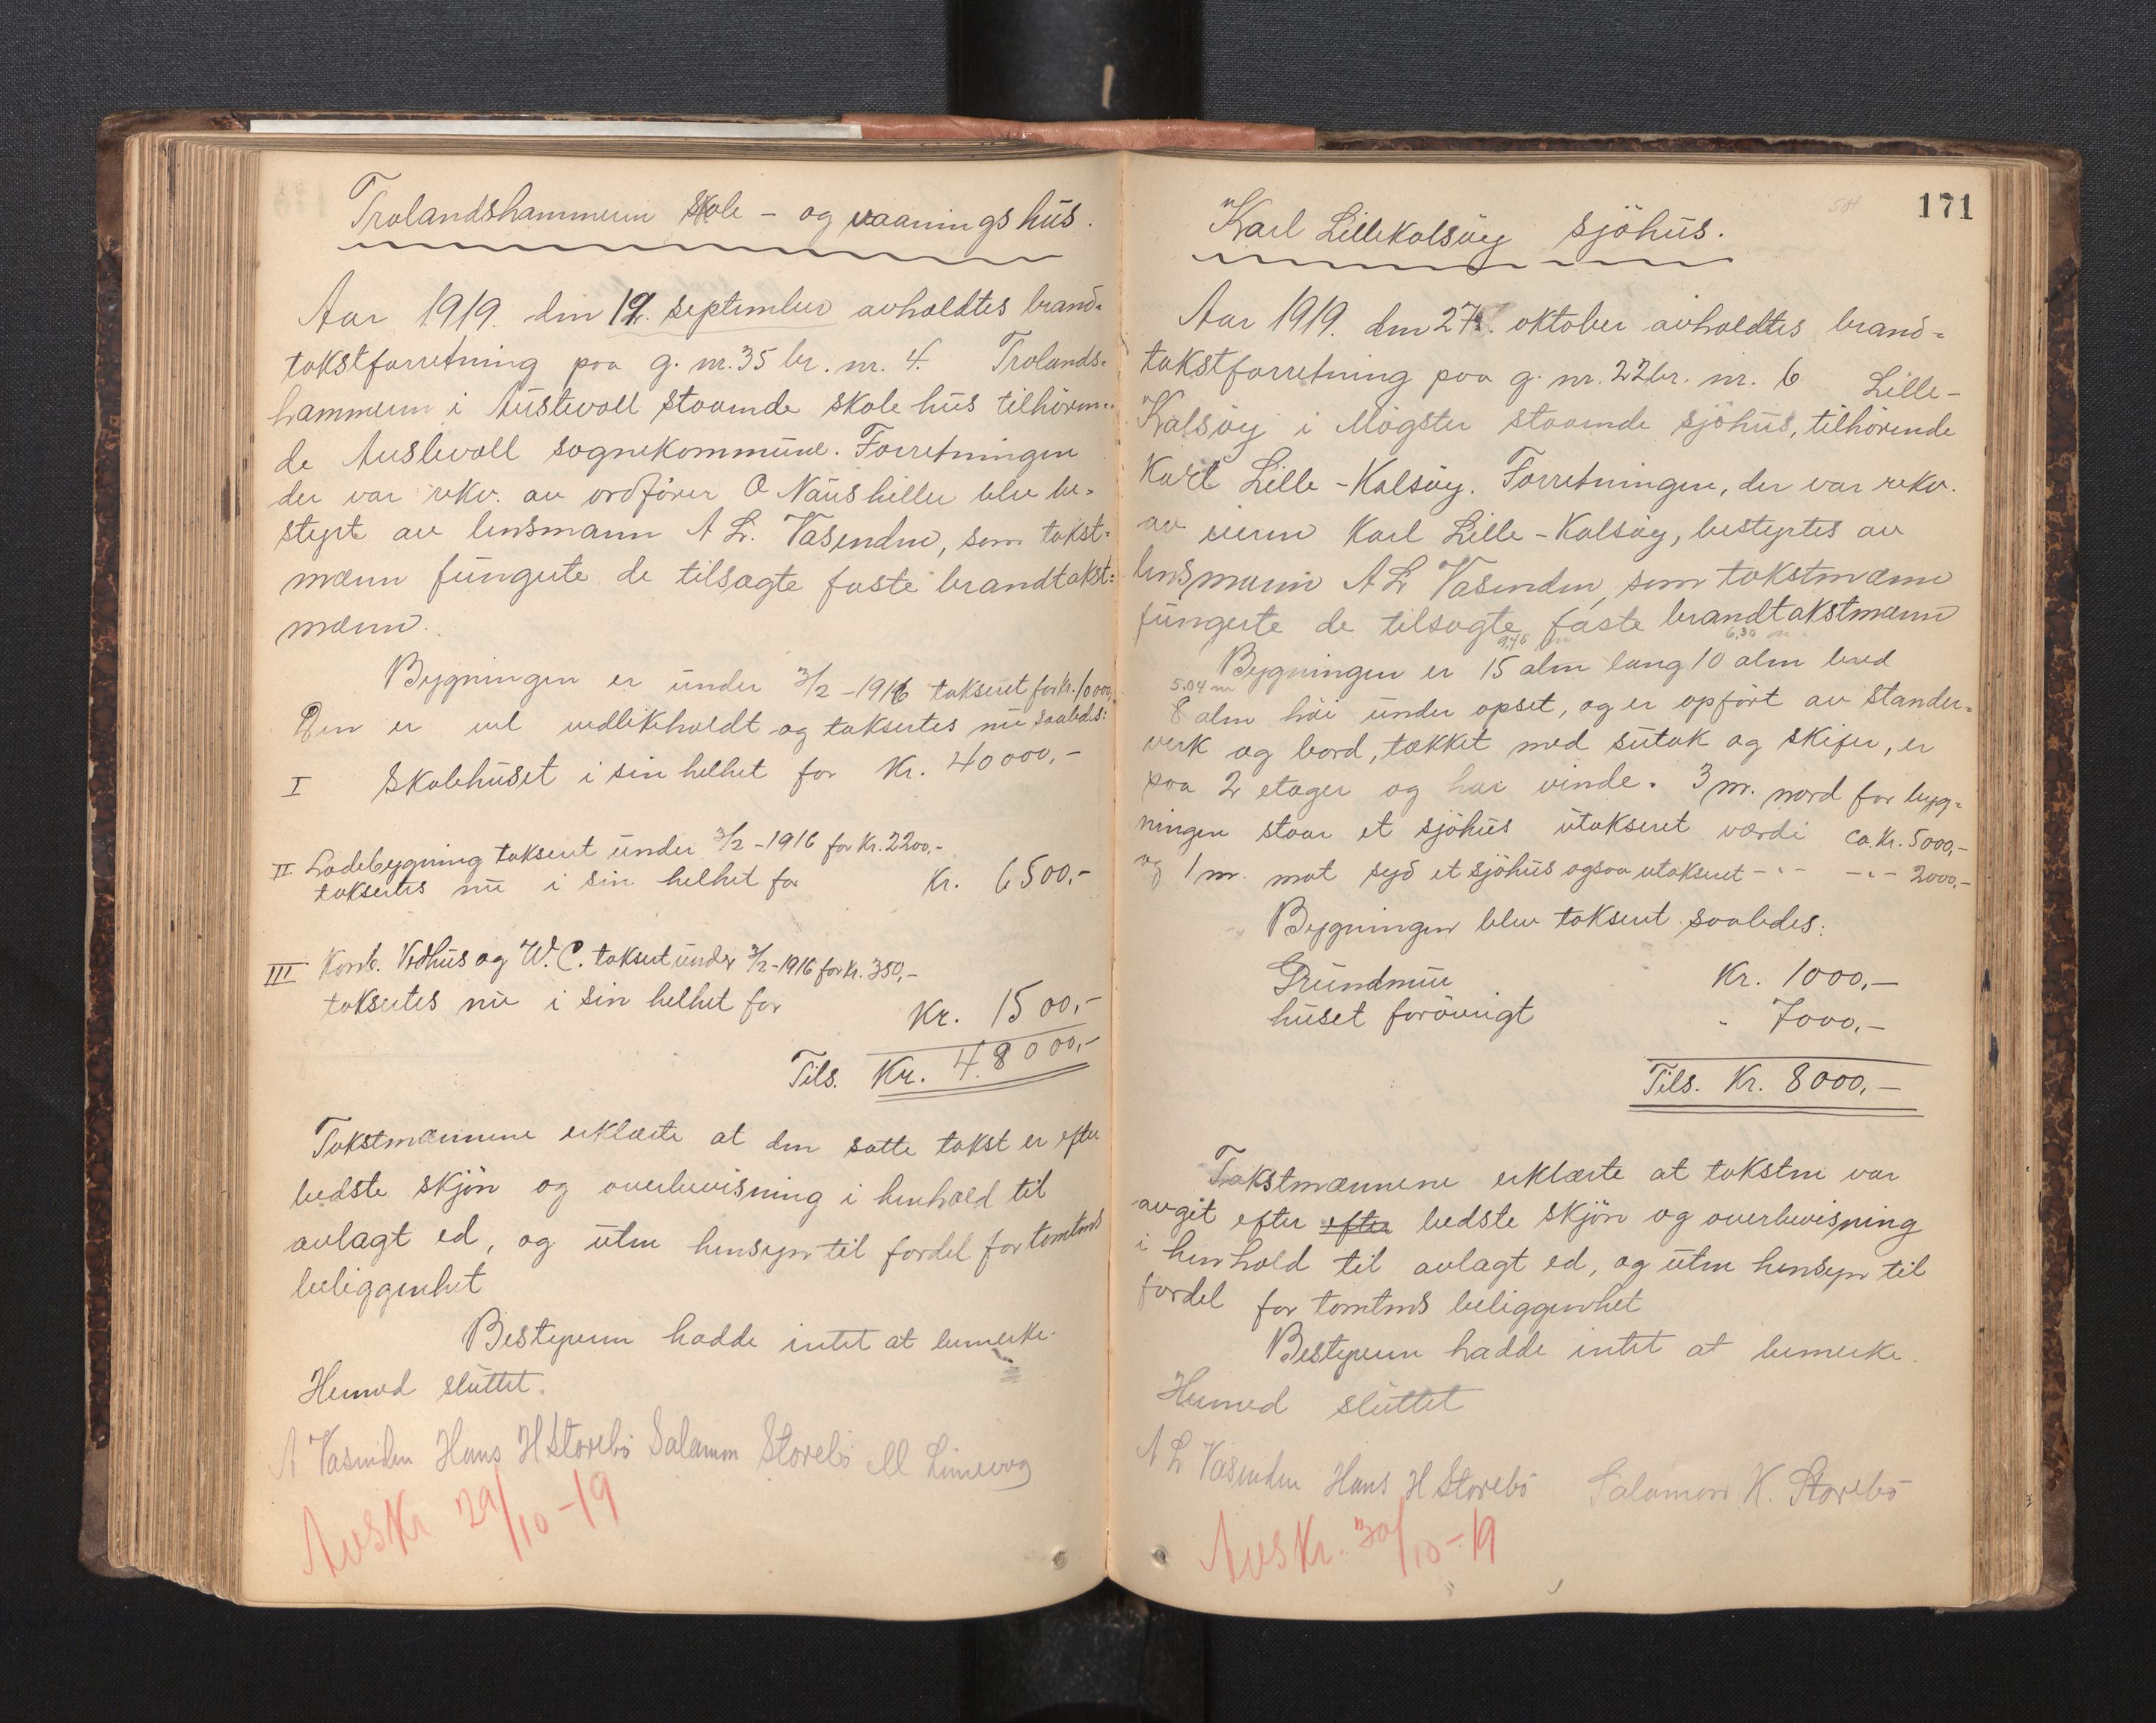 Trolandshammeren skole- og vaaningshus.
Aar 1919. den 12. september avholdtes brand=
takstforretning paa g. nr. 35 br. nr. 4. Trolands=
hammeren i Austevoll staaende skolehus tilhören=
de Austevoll sognekommune. Forretningen
der var rekv. av ordförer O Naushiller blev be=
styrt av lensmann A L. Vasenden, som takst=
mænn fungerte de tilsagte faste brandtakst=
mænn.
Bygningen er under 3/2-1916 taksert for kr. 10000,-
Den er vel vedlikeholdt og taksertes nu saaledes:
I Skolehuset i sin helhet for Kr. 40000,-
II Ladebygning taksert under 3/2-1916 for Kr. 2200,-
taksertes nu i sin helhet for Kr. 6500,-
III Komb. Vedhus og W.C. taksert under 3/2-1916 for Kr. 350,-
taksertes nu i sin helhet for
Kr. 1500,-
Tils. Kr. 48000,-
Takstmænnene erklærte at den satte takst er efter
bedste skjön og overbevisning i henhold til
avlagt ed, og uten hensyn til fordel for tomtens
beliggenhet
Bestyreren hadde intet at bemerke.
Hermed sluttet.
A Vasenden Hans H Storebö Salamon Storebö M Limevog
Avskr 29/10-19
171
Karl Lillekalsöy sjöhus.
Aar 1919. den 27. oktober avholdtes brand=
takstforretning paa g. nr. 22 br. nr. 6 Lille-
Kalsöy i Mögster staaende sjöhus, tilhörende
Karl Lille-Kalsöy. Forretningen, der var rekv.
av eieren Karl Lille-Kalsöy, bestyrtes av
lensmann A L Vasenden, som takstmænn
fungerte de tilsagte faste brandtakstmænn
9,45 m 6,30 m
Bygningen er 15 alen lang 10 alen bred
5.04 m
8 alen höi under opset, og er opfört av stander=
verk og bord, tækket med sutak og skifer, er
paa 2 etager og har vinde. 3 m. nord for byg=
ningen staar et sjöhus utaksert værdi ca. Kr. 5000,-
og 1 m. mot syd et sjöhus ogsaa utaksert -"- -"- 2000,-
Bygningen blev taksert saaledes:
Grundmur Kr. 1000,-
huset forövrigt " 7000,-
Tils. Kr. 8000,-
Takstmænnene erklærte at taksten var
avgit efter efter bedste skjön og overbevisning
i henhold til avlagt ed, og uten hensyn til
fordel for tomtens beliggenhet
Bestyreren hadde intet at bemerke.
Hermed sluttet
A L Vasenden Hans H Storebö Salamon K. Storebö
Avskr. 30/10-19